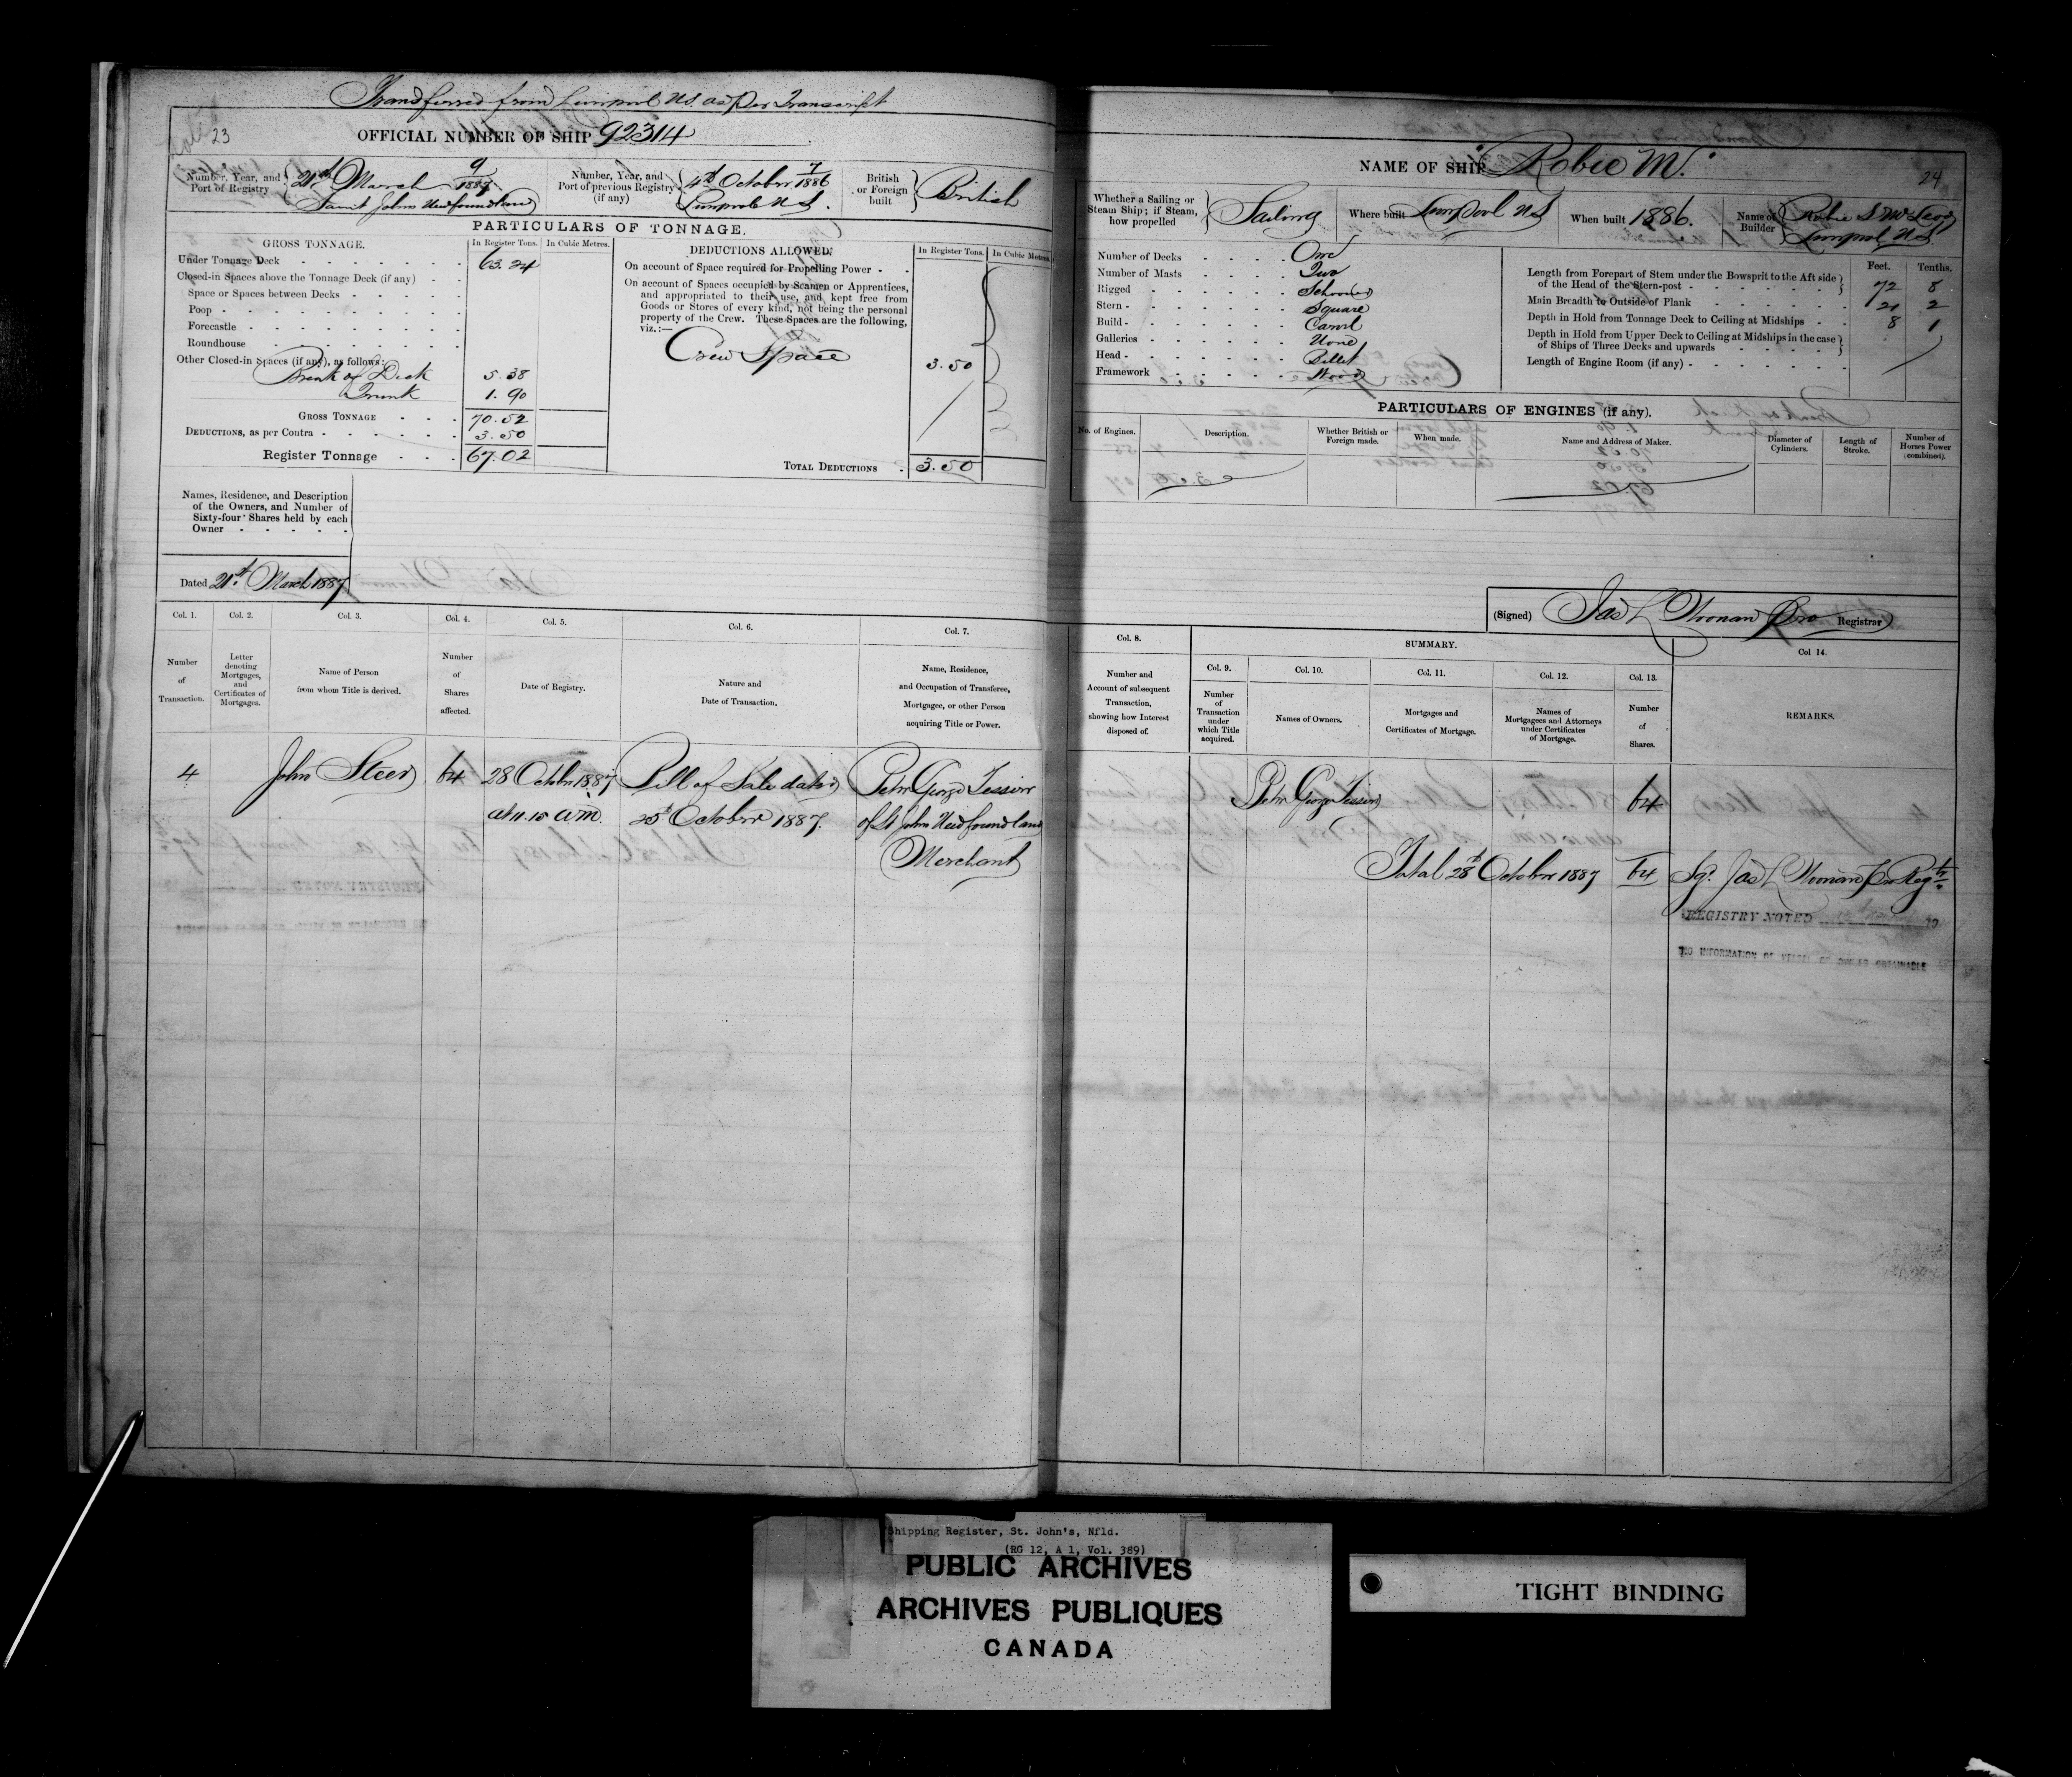 Transferred from Liverpool N.S. as per Transcript
23
OFFICIAL NUMBER OF SHIP 92314
Number, Year, and Port of Registry
21st March 9/1887
Saint Johns Newfoundland
Number, Year, and Port of previous Registry (if any)
4th October 7/1886
Liverpool N S.
British or Foreign built
British
PARTICULARS OF TONNAGE.
GROSS TONNAGE.
In Register Tons.
In Cubic Metres.
Under Tonnage Deck 63.24
Closed-in Spaces above the Tonnage Deck (if any)
Space or Spaces between Decks
Poop
Forecastle
Roundhouse
Other Closed-in Spaces (if any), as follows:
Break of Deck 5.38
Trunk 1.90
GROSS TONNAGE 70.52
DEDUCTIONS, as per Contra 3.50
Register Tonnage 67.02
DEDUCTIONS ALLOWED.
In Register Tons.
In Cubic Metres.
On account of Space required for Propelling Power
On account of Spaces occupied by Seamen or Apprentices,
and appropriated to their use, and kept free from
Goods or Stores of every kind, not being the personal
property of the Crew. These Spaces are the following,
viz.:—
Crew Space 3.50
TOTAL DEDUCTIONS 3.50
Names, Residence, and Description
of the Owners, and Number of
Sixty-four Shares held by each
Owner
Dated 21st March 1887
Col. 1.
Number
of
Transaction.
Col. 2.
Letter
denoting
Mortgages,
and
Certificates of
Mortgages.
Col. 3.
Name of Person
from whom Title is derived.
Col. 4.
Number
of
Shares
affected.
Col. 5.
Date of Registry.
Col. 6.
Nature and
Date of Transaction.
Col. 7.
Name, Residence,
and Occupation of Transferee,
Mortgagee, or other Person
acquiring Title or Power.
4
John Steer
64
28 October 1887
at 11.15 a m.
Bill of Sale dated
25th October 1887.
Peter George Tessier
of St Johns Newfoundland
Merchant
24
NAME OF SHIP "Robie M."
Whether a Sailing or
Steam Ship; if Steam,
how propelled
Sailing
Where built Liverpool N S
When built 1886.
Name of Builder
Robie S McLeod
Liverpool N.S.
Number of Decks One
Number of Masts Two
Rigged Schooner
Stern Square
Build Carvel
Galleries None
Head Billet
Framework Wood
Feet.
Tenths.
Length from Forepart of Stem under the Bowsprit to the Aft side
of the Head of the Stern-post 72 8
Main Breadth to Outside of Plank 21 2
Depth in Hold from Tonnage Deck to Ceiling at Midships 8 1
Depth in Hold from Upper Deck to Ceiling at Midships in the case
of Ships of Three Decks and upwards
Length of Engine Room (if any)
PARTICULARS OF ENGINES (if any).
No. of Engines.
Description.
Whether British or
Foreign made.
When made.
Name and Address of Maker.
Diameter of
Cylinders.
Length of
Stroke.
Number of
Horses Power
(combined).
(Signed) Jas L Noonan Pro Registrar
Col. 8.
Number and
Account of subsequent
Transaction,
showing how Interest
disposed of.
SUMMARY.
Col. 9.
Number
of
Transaction
under
which Title
acquired.
Col. 10.
Names of Owners.
Col. 11.
Mortgages and
Certificates of Mortgage.
Col. 12.
Names of
Mortgagees and Attorneys
under Certificates
of Mortgage.
Col. 13.
Number
of
Shares.
Col 14.
REMARKS.
Peter George Tessier
64
Total 28th October 1887
64
Sg. Jas L Noonan Pro Regtr
REGISTRY NOTED
NO INFORMATION OF VESSEL OR OWNER OBTAINABLE
Shipping Register, St. John's, Nfld.
(RG 12, A 1, Vol. 389)
PUBLIC ARCHIVES
ARCHIVES PUBLIQUES
CANADA
TIGHT BINDING